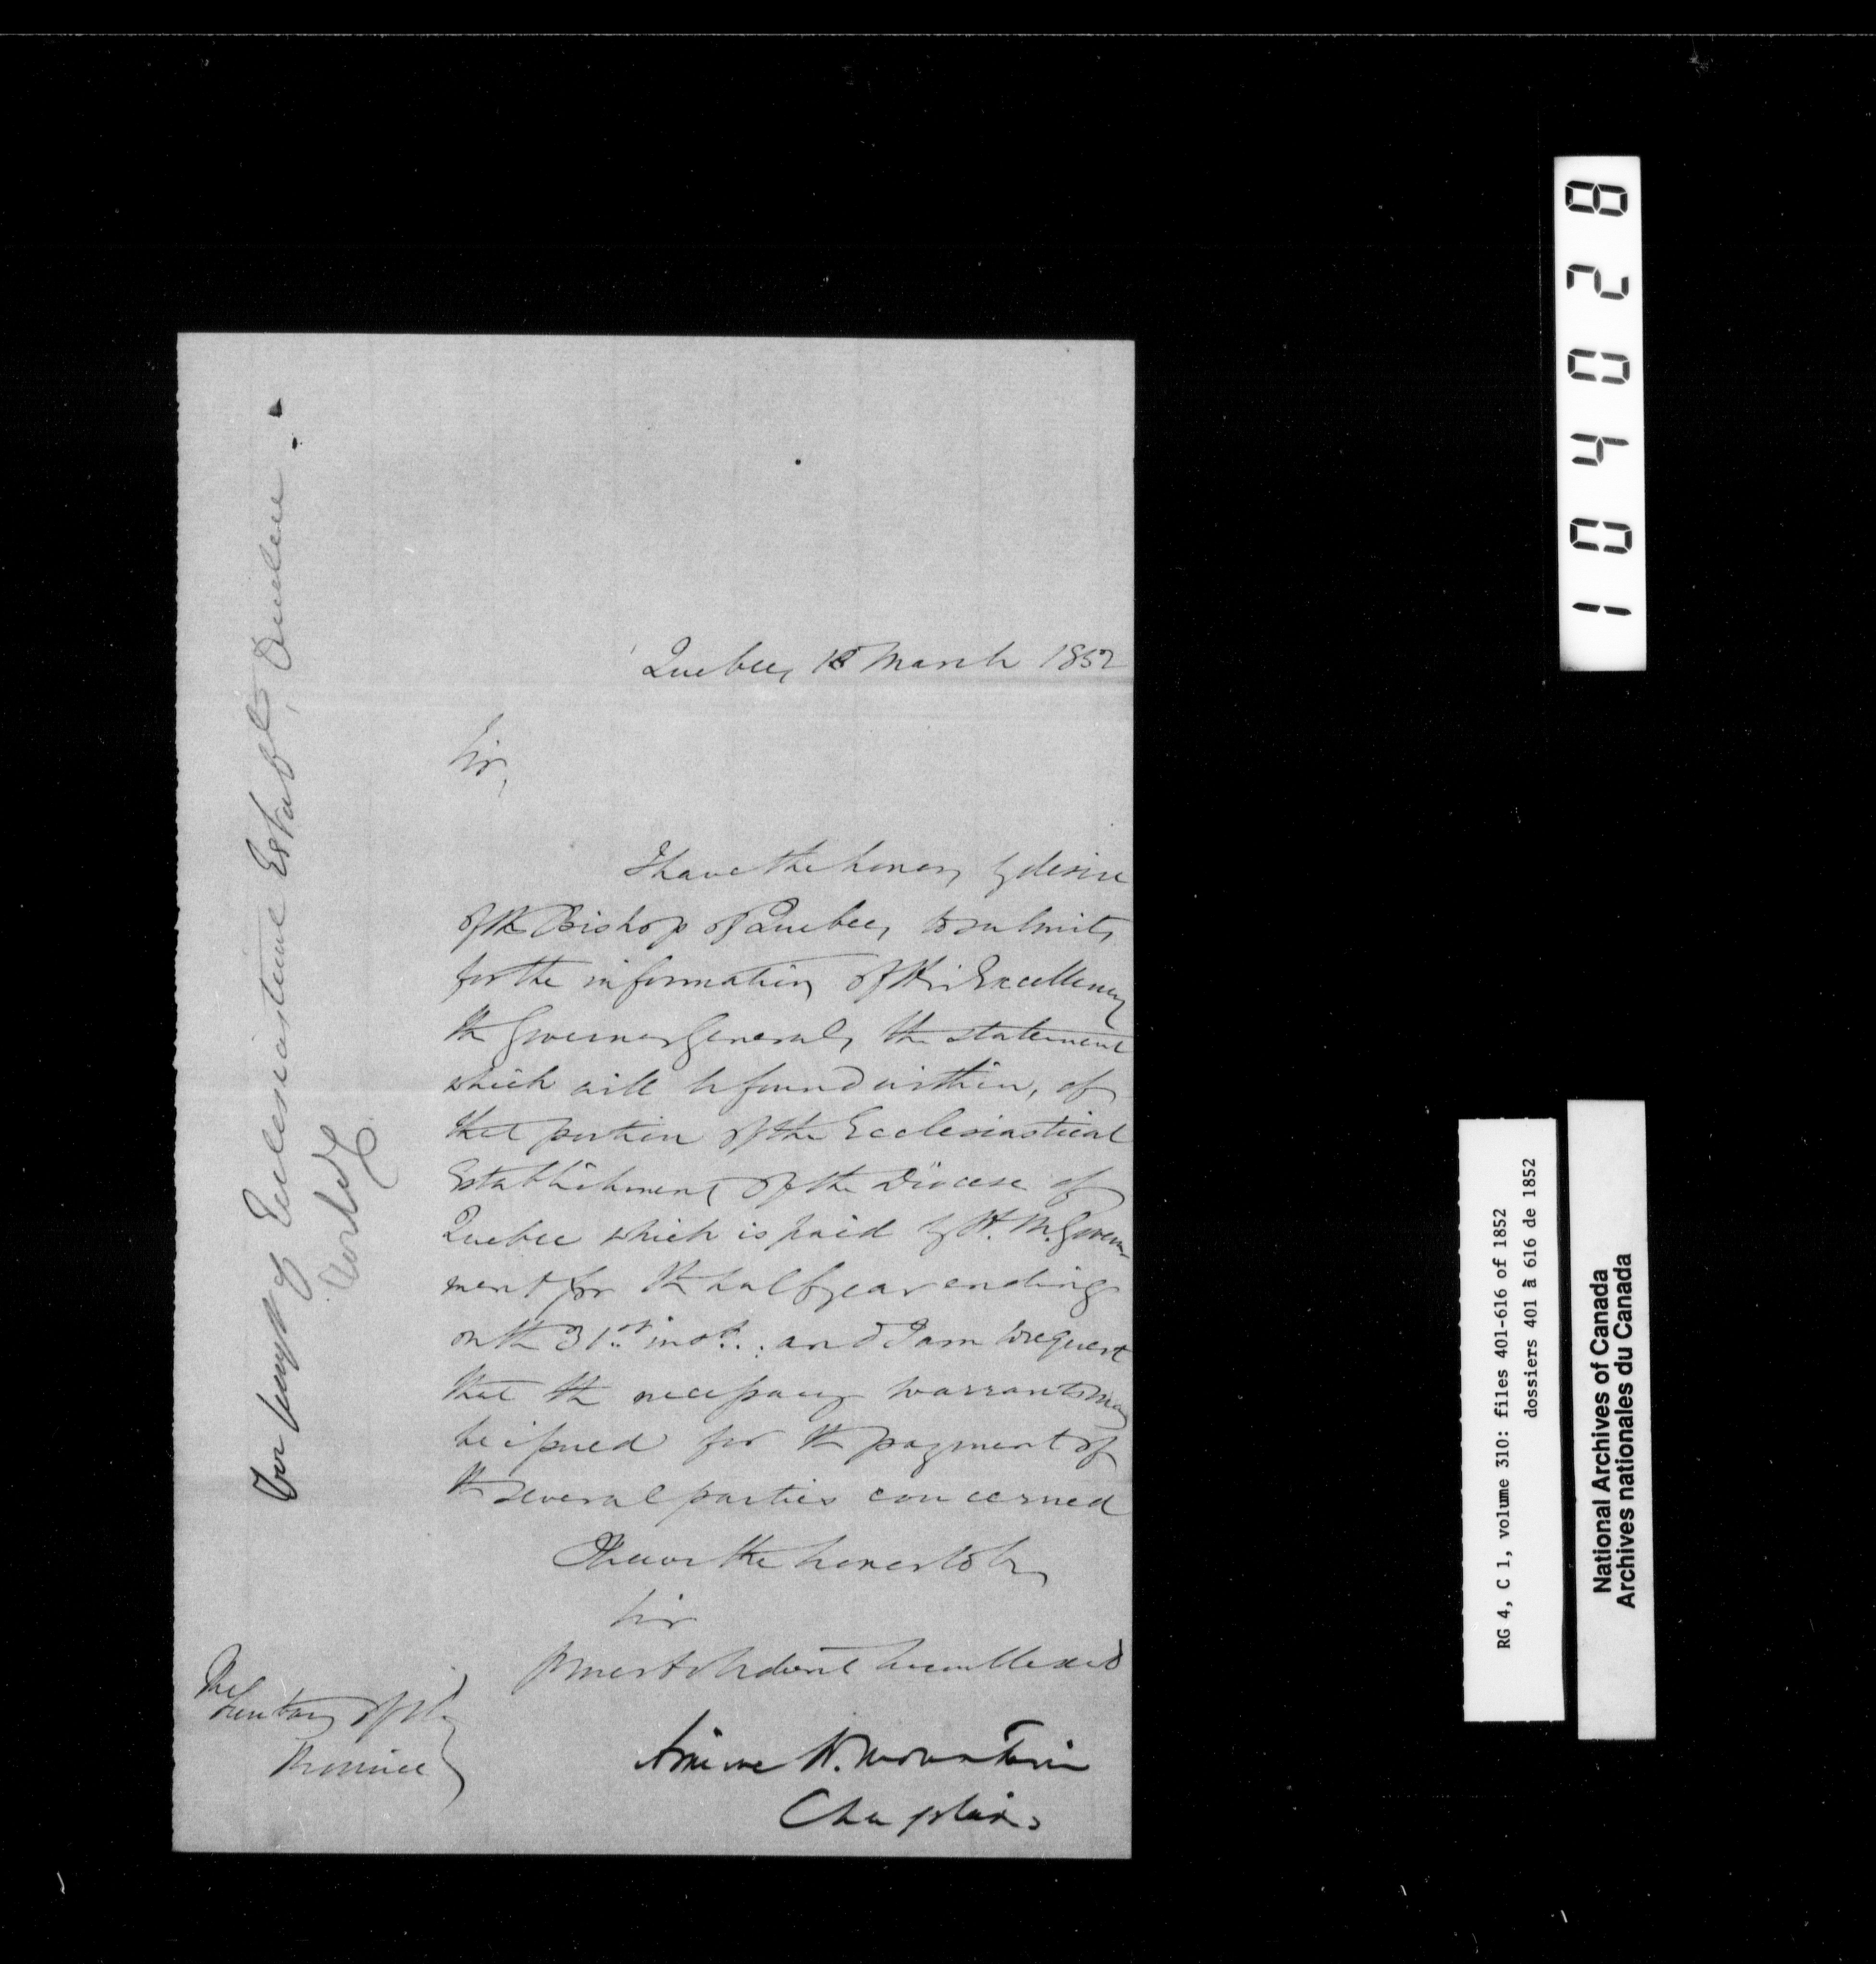 Quebec, 18 March 1852
Sir,
I have the honor, by desire
of the Bishop of Quebec, to submit,
for the information of His Excellency
the Governor General, the statement
which will be found within, of
that portion of the Ecclesiastical
Establishment of the Diocese of
Quebec which is paid by H. M. Govern-
ment for the half year ending
on the 31st inst.: and I am to request
that the necessary warrants may
be issued for the payment of
the several parties concerned
I have the honor to be
Sir
Yr most obedient humble servt
Armine W. Mountain
Chaplain
The
Secretary of the
Province
Ecclesiastical Establt, Quebec.
104028
RG 4, C 1, volume 310: files 401-616 of 1852
dossiers 401 à 616 de 1852
National Archives of Canada
Archives nationales du Canada